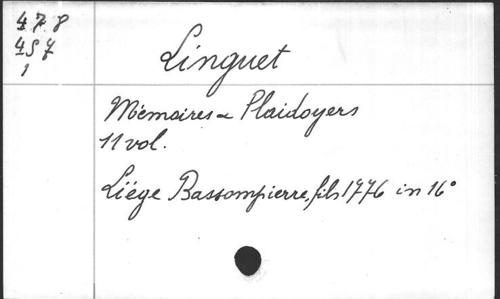 47.8
457
1
Linguet
Mémoires & Plaidoyers
11 vol.
Liége Bassompierre, fils 1776 in 16°